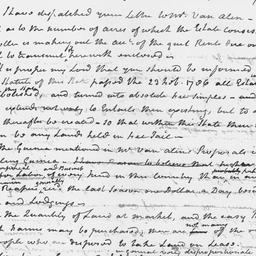 I have dispatched your letter to Mr. Van Alen
as to the number of acres of which the Estate consis
is making out the acct. of the quit Rents due on
and to transmit herewith enclosed in
proper my Lord that you should be informed
Statute of this State passed the 23 Feb. 1786 all Estat
abolished, and turned into absolute fee-simples - and
extends not only to Entails then existing but to
thereafter be created - so that within this State there
be any Lands held in fee Tail -
The Guinea mentioned in Mr. Van Alens Proposals
Guinea - I have reason to believe that
Labor of every kind in this country than
Reapers had the last season one Dollar a Day besid
and Lodgings -
the Quantity of Land at market, and the easy
Farms may be purchased, there are not many
people who are disposed to take Land on Lease.